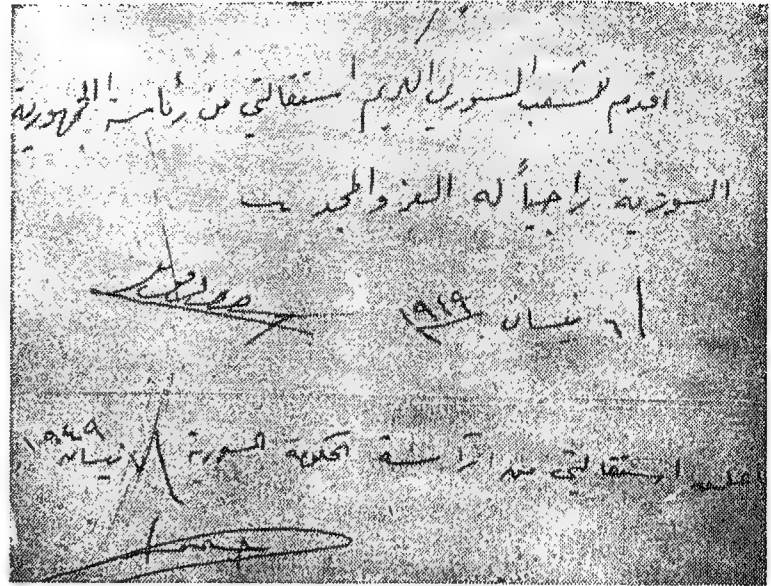 اقدم للشعب السوري الكريم استقالتي من رئاسة الجمهورية
السورية راجياً له العز والمجد
٦ نيسان ١٩٤٩
اعلن استقالتي من رئاسة الحكومة السورية
٧ نيسان ١٩٤٩